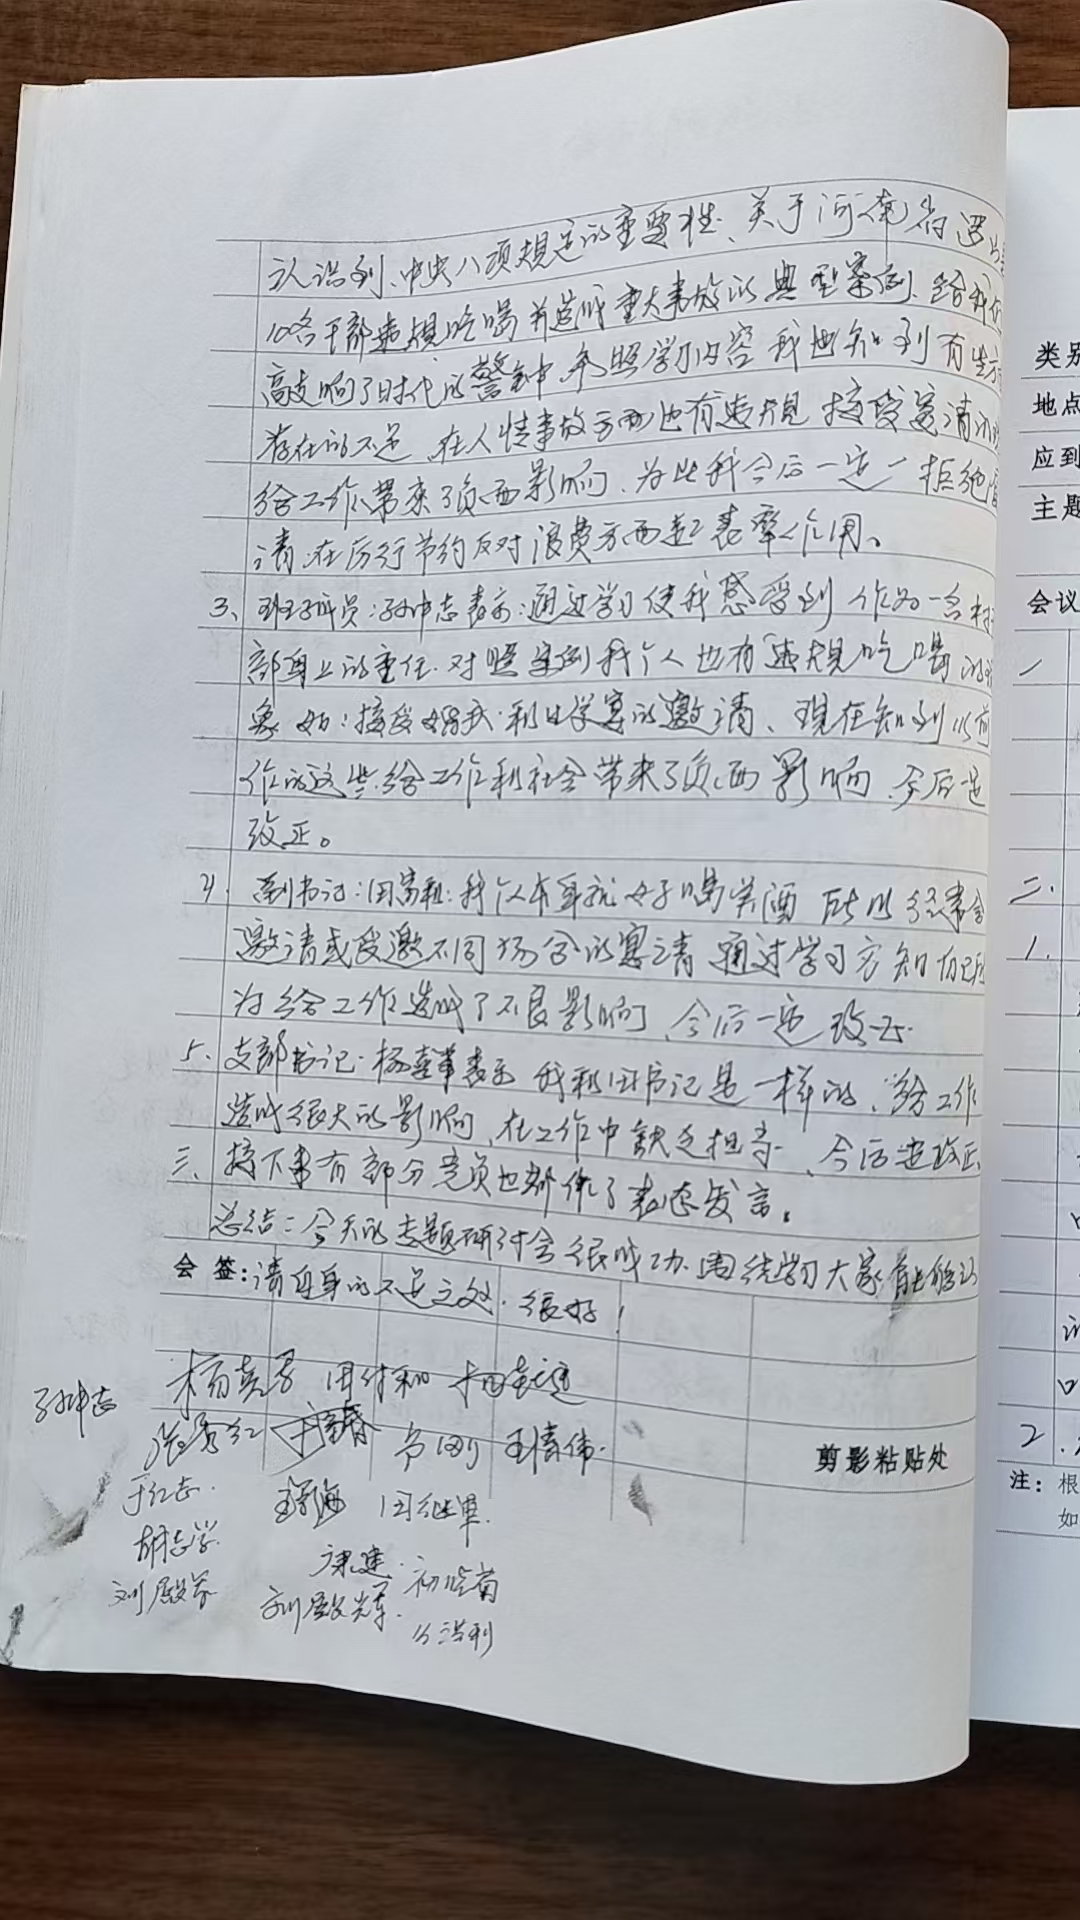 认识到、中央八项规定的重要性、关于河南省
10名干部违规吃喝并造成重大事故的典型案例、给我们
高支响了时代的警钟、参照学习内容我也知到有些方
存在的不足、在人情事故方面也有违规接受宴请的
给工作带来了负面影响、为此我今后一定一拒绝
请、在厉行节约反对浪费方面起表率作用。
3、班子成员:孙中志表示:通过学习使我感受到作为一名村
部身上的重任、对照案例我个人也有违规吃喝的
象如:接受婚庆、和升学宴的邀请、现在知到以前
作的这些给工作和社会带来了负面影响、今后一定
改正。
4、副书记:田富和:我个人本身就好喝关酒所以经常会
邀请或受邀不同场合的宴请通过学习方知
为给工作造成了不良影响、今后一定改正
5、支部书记·杨表示我和田书记是一样的、给工作
造成很大的影响、在工作中缺乏担当、今后要改正
三、接下来有部分党员也都作了表态发言。
总结:今天的专题研讨会很成功.围绕学习大家都能够认
会 签:清自身的不足之处.很好!
孙中志
王清伟
于红志
田继军
胡志学
康建
初晓菊
刘殿军
刘殿辉
剪影粘贴处
类别
地点
应到
主题
会议
一
二.
1.
2.
注: 根
如